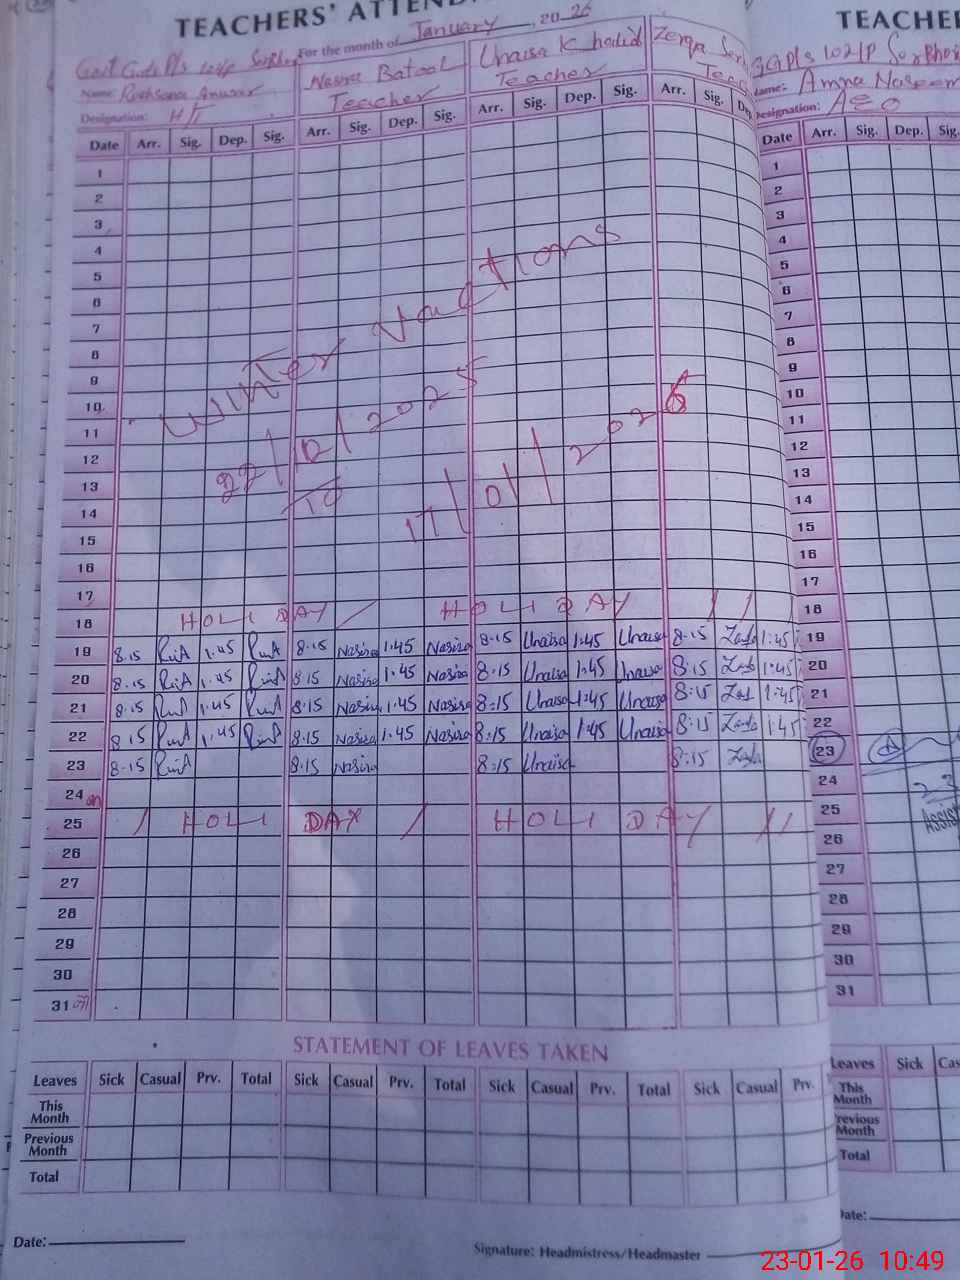 TEACHERS' ATTEND
For the month of January, 2026
Govt Girls P/s 102/P Sorbhos
Name: Rukhsana Anwar
Designation: HT
Nasira Batool
Teacher
Unaisa Khalid
Teacher
Zerqa
Teac
Date Arr. Sig. Dep. Sig. Arr. Sig. Dep. Sig. Arr. Sig. Dep. Sig. Arr. Sig. Dep
1
2
3
4
5
6
7
8
9
10
11
12
13
14
15
16
17
Winter vactions
22/12/2025
to
17/01/2026
18 HOLIDAY / HOLIDAY / /
19 8:15 1:45 8:15 Nasira 1:45 Nasira 8:15 Unaisa 1:45 Unaisa 8:15 1:45
20 8:15 1:45 8:15 Nasira 1:45 Nasira 8:15 Unaisa 1:45 Unaisa 8:15 1:45
21 8:15 1:45 8:15 Nasira 1:45 Nasira 8:15 Unaisa 1:45 Unaisa 8:15 1:45
22 8:15 1:45 8:15 Nasira 1:45 Nasira 8:15 Unaisa 1:45 Unaisa 8:15 1:45
23 8:15 8:15 Nasira 8:15 Unaisa 8:15
24
25 / HOLIDAY / HOLIDAY //
26
27
28
29
30
31
STATEMENT OF LEAVES TAKEN
Leaves Sick Casual Prv. Total Sick Casual Prv. Total Sick Casual Prv. Total Sick Casual Prv.
This Month
Previous Month
Total
Date:
Signature: Headmistress/Headmaster
TEACHER
GGPls 102/P Sorbhos
Name: Amna Naseem
Designation: AEO
Date Arr. Sig. Dep. Sig.
1
2
3
4
5
6
7
8
9
10
11
12
13
14
15
16
17
18
19
20
21
22
23
24
25
Assis
26
27
28
29
30
31
Leaves Sick Cas
This Month
Previous Month
Total
Date:
23-01-26 10:49